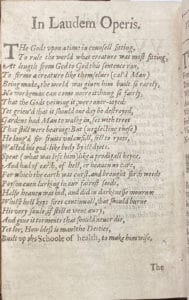 In Laudem Operis.
THe Gods upon a time in counsell sitting,
To rule the world what creature was most fitting,
At length from God to God this sentence ran,
To forme a creature like themselves (cal'd Man)
Being made, the world was given him built so rarely,
No workeman can come nere it
That the Gods viewing it were over-ioyed:
Yet grieved that it should one day be destroyed,
Gardens had Man to walke in, set with trees
That still were bearing: But (neglecting these)
He long'd for fruits unlawfull, fell to
Wasted his god-like body by
Spent (what was left him) like a prodigall heyre,
And had of earth, of hell, or heaven no care,
For which the earth was curst, and brought forth weeds
Poyson even lurking in our fairest seeds,
Halfe heaven was hid, and did in darknesse mourne
Whilst hell kept fires continuall, that should burne
His very soule, if still it went awry,
And give it torments that should never die,
Yet loe, How blest is man the Deities,
Built up this Schoole of health, to make him wise,
The